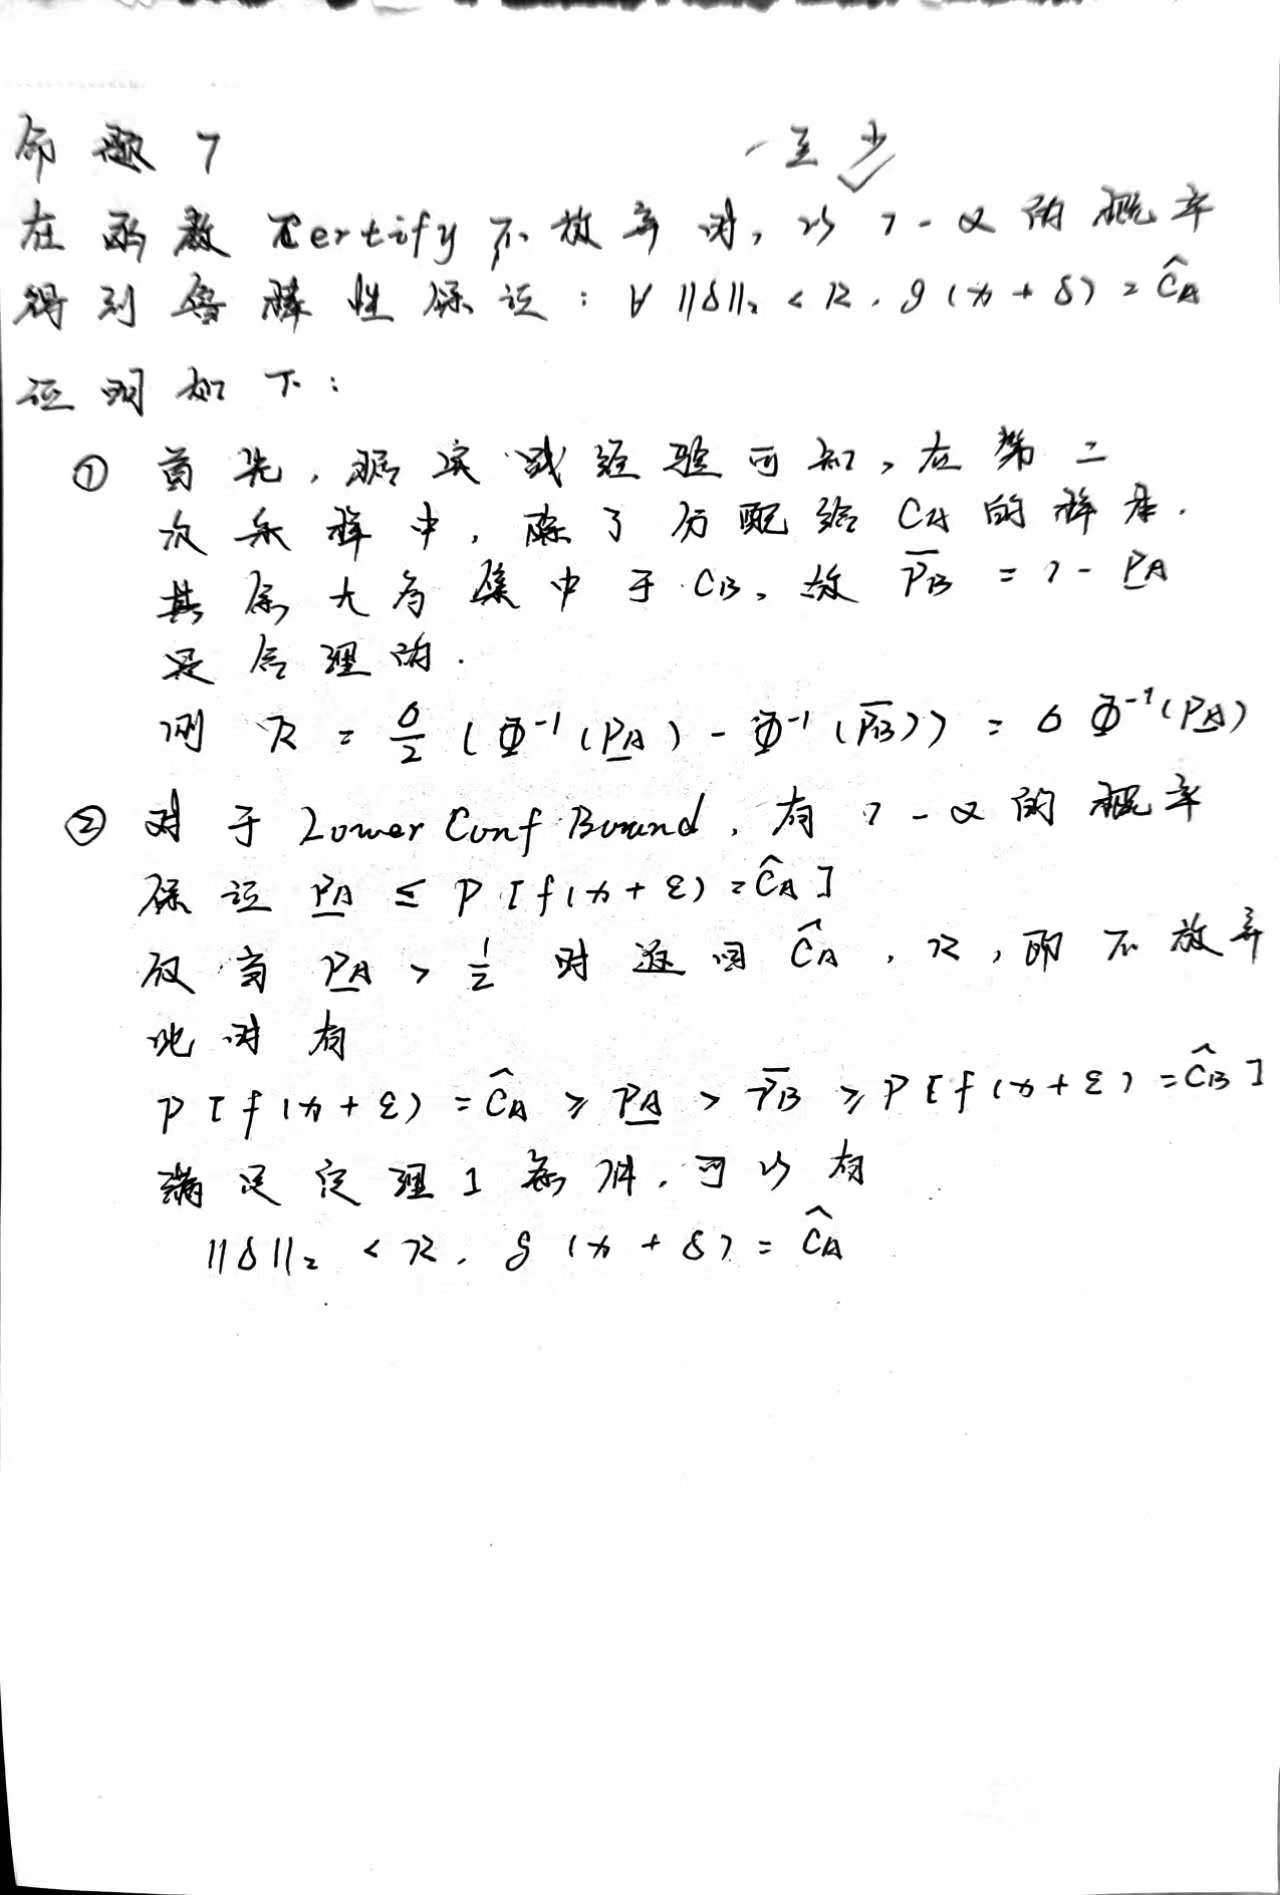 命题 7
至少
在函数 Certify 不放弃时, 以 1-α 的概率
得到鲁棒性保证: ∀ ||δ||₂ < R, g(x+δ) = ĉA
证明如下:
① 首先, 据实践经验可知, 在第二
次采样中, 除了分配给 CA 的样本,
其余大多集中于 CB, 故 \overline{PB} = 1 - \underline{PA}
是合理的.
则 R = σ/2 (Φ⁻¹(\underline{PA}) - Φ⁻¹(\overline{PB})) = σ Φ⁻¹(\underline{PA})
② 对于 Lower Conf Bound, 有 1-α 的概率
保证 \underline{PA} ≤ P[f(x+ε) = ĉA]
仅当 \underline{PA} > 1/2 时返回 ĉA, R, 即不放弃
此时有
P[f(x+ε) = ĉA ≥ \underline{PA} > \overline{PB} ≥ P[f(x+ε) = ĉB]
满足定理1条件, 可以有
||δ||₂ < R, g(x+δ) = ĉA